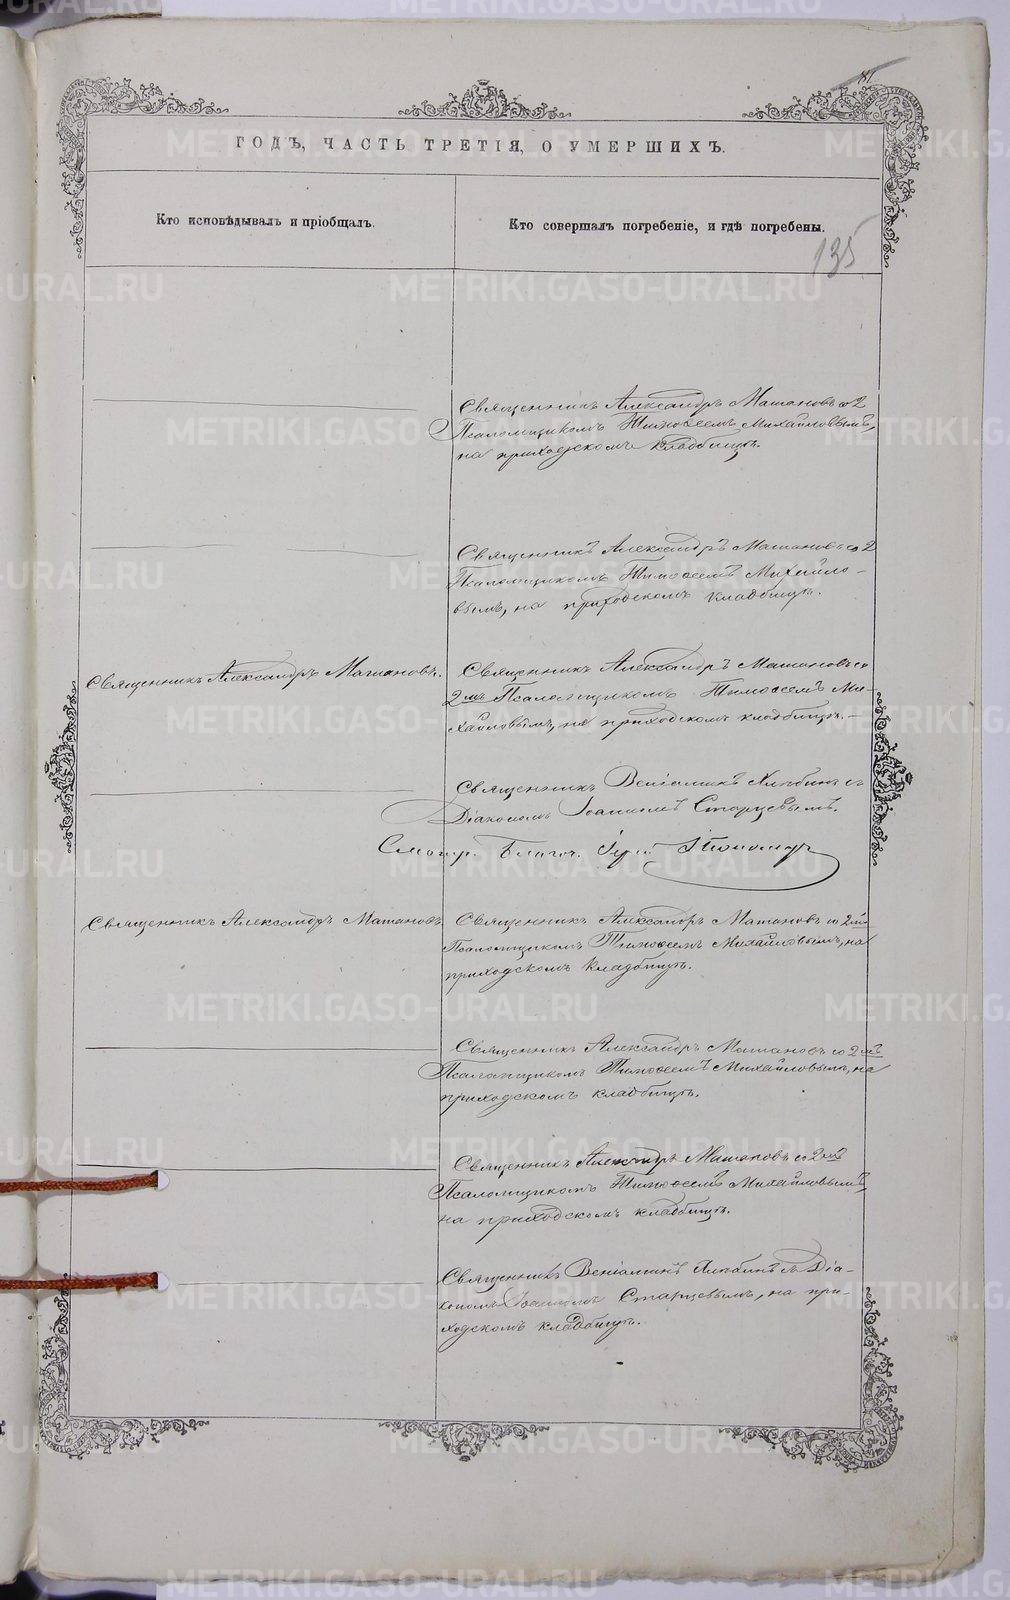 81
ГОДЪ, ЧАСТЬ ТРЕТІЯ, О УМЕРШИХЪ.
Кто исповѣдывалъ и пріобщалъ.
Кто совершалъ погребеніе, и гдѣ погребены.
135
Священникъ Александръ Матановъ со 2
Псаломщикомъ Тимоѳеемъ Михайловымъ,
на приходскомъ кладбищѣ.
Священникъ Александръ Матановъ со 2
Псаломщикомъ Тимоѳеемъ Михайло-
вымъ, на приходскомъ кладбищѣ.
Священникъ Александръ Матановъ.
Священникъ Александръ Матановъ со
2мъ Псаломщикомъ Тимоѳеемъ Ми-
хайловымъ, на приходскомъ кладбищѣ.
Священникъ Веніаминъ Хлѣбинъ съ
Діакономъ Іоанномъ Старцевымъ.
Смотр. Благоч. Іерей
Священникъ Александръ Матановъ
Священникъ Александръ Матановъ со 2мъ
Псаломщикомъ Тимоѳеемъ Михайловымъ, на
приходскомъ кладбищѣ.
Священникъ Александръ Матановъ со 2мъ
Псаломщикомъ Тимоѳеемъ Михайловымъ, на
приходскомъ кладбищѣ.
Священникъ Александръ Матановъ со 2мъ
Псаломщикомъ Тимоѳеемъ Михайловымъ,
на приходскомъ кладбищѣ.
Священникъ Веніаминъ Хлѣбинъ съ Діа-
кономъ Іоанномъ Старцевымъ, на при-
ходскомъ кладбищѣ.
METRIKI.GASO-URAL.RU